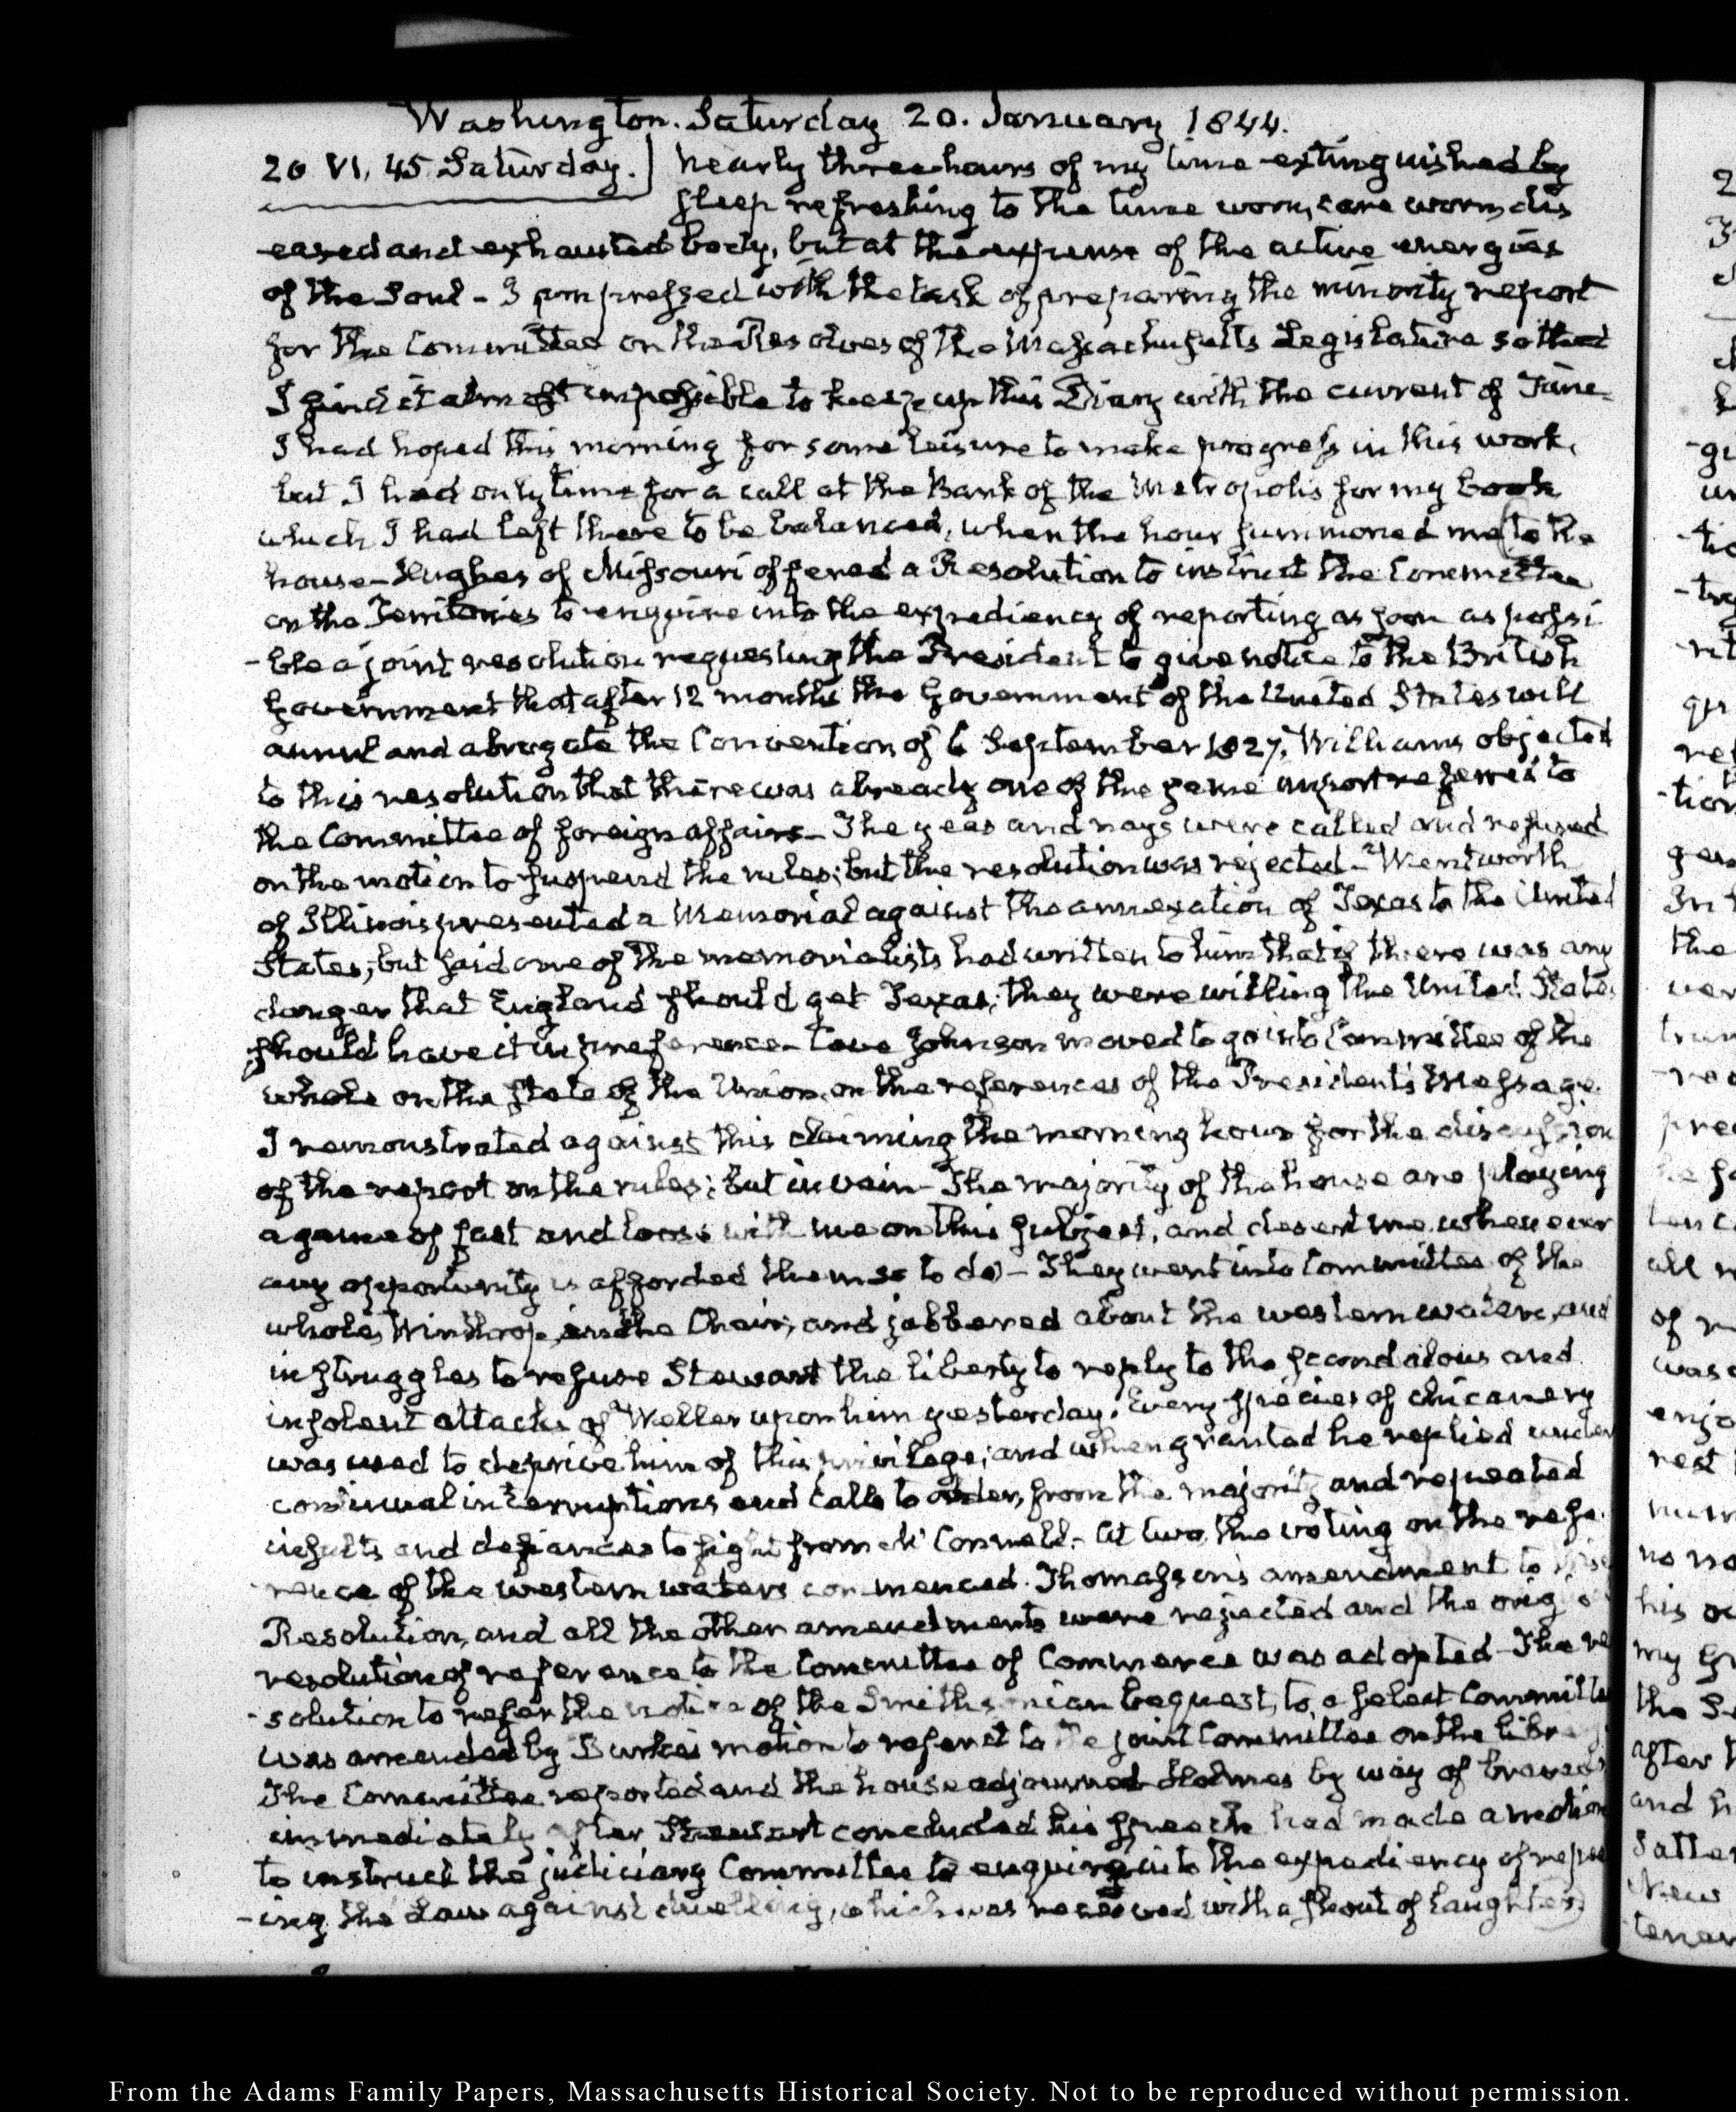 Washington. Saturday 20. January 1844.
20 VI, 45 Saturday. Nearly three hours of my time extinguished by
sleep refreshing to the time worn, care worn, dis
eased and exhausted body, but at the expense of the active energies
of the Soul - I am pressed with the task of preparing the minority report
for the Committee on the Resolves of the Massachusetts Legislature so that
I find it almost impossible to keep up this Diary with the current of Time -
I had hoped this morning for some leisure to make progress in this work,
but I had only time for a call at the Bank of the Metropolis for my book
which I had left there to be balanced, when the hour summoned me to the
house - Hughes of Missouri offered a Resolution to instruct the Committee
on the Territories to enquire into the expediency of reporting as soon as possi
-ble a joint resolution requesting the President to give notice to the British
Government that after 12 months the Government of the United States will
annul and abrogate the Convention of 6 September 1827. Williams objected
to this resolution that there was already one of the same import referred to
the Committee of foreign affairs - The yeas and nays were called and refused
on the motion to suspend the rules; but the resolution was rejected - Wentworth
of Illinois presented a Memorial against the annexation of Texas to the United
States, but said one of the memorialists had written to him that if there was any
danger that England should get Texas, they were willing the United States
should have it in preference - Cave Johnson moved to go into Committee of the
whole on the state of the Union, on the references of the President's Message.
I remonstrated against this claiming the morning hour for the discussion
of the report on the rules; but in vain - The majority of the house are playing
a game of fast and loose with me on this subject, and desert me whenever
any opportunity is afforded them so to do - They went into Committee of the
whole, Winthrop in the Chair, and jabbered about the western waters, and
in struggles to refuse Stewart the liberty to reply to the scandalous and
insolent attacks of Weller upon him yesterday. Every species of chicanery
was used to deprive him of this privilege; and when granted he replied under
continual interruptions and calls to order, from the majority and repeated
insults and defiances to fight from Mc Connell. At two, the voting on the refe
-rence of the western waters commenced. Thomasson's amendment to
Resolution, and all the other amendments were rejected and the
resolution of reference to the Committee of Commerce was adopted - The re
-solution to refer the notice of the Smithsonian bequest, to a select Committee
was amended by Burke's motion to refer it to the joint Committee on the
The Committee reported and the house adjourned. Holmes by way of
immediately after Stewart concluded his speech had made a motion
to instruct the judiciary Committee to enquire into the expediency of
-ing the Law against duelling, which was received with a shout of laughter.
From the Adams Family Papers, Massachusetts Historical Society. Not to be reproduced without permission.